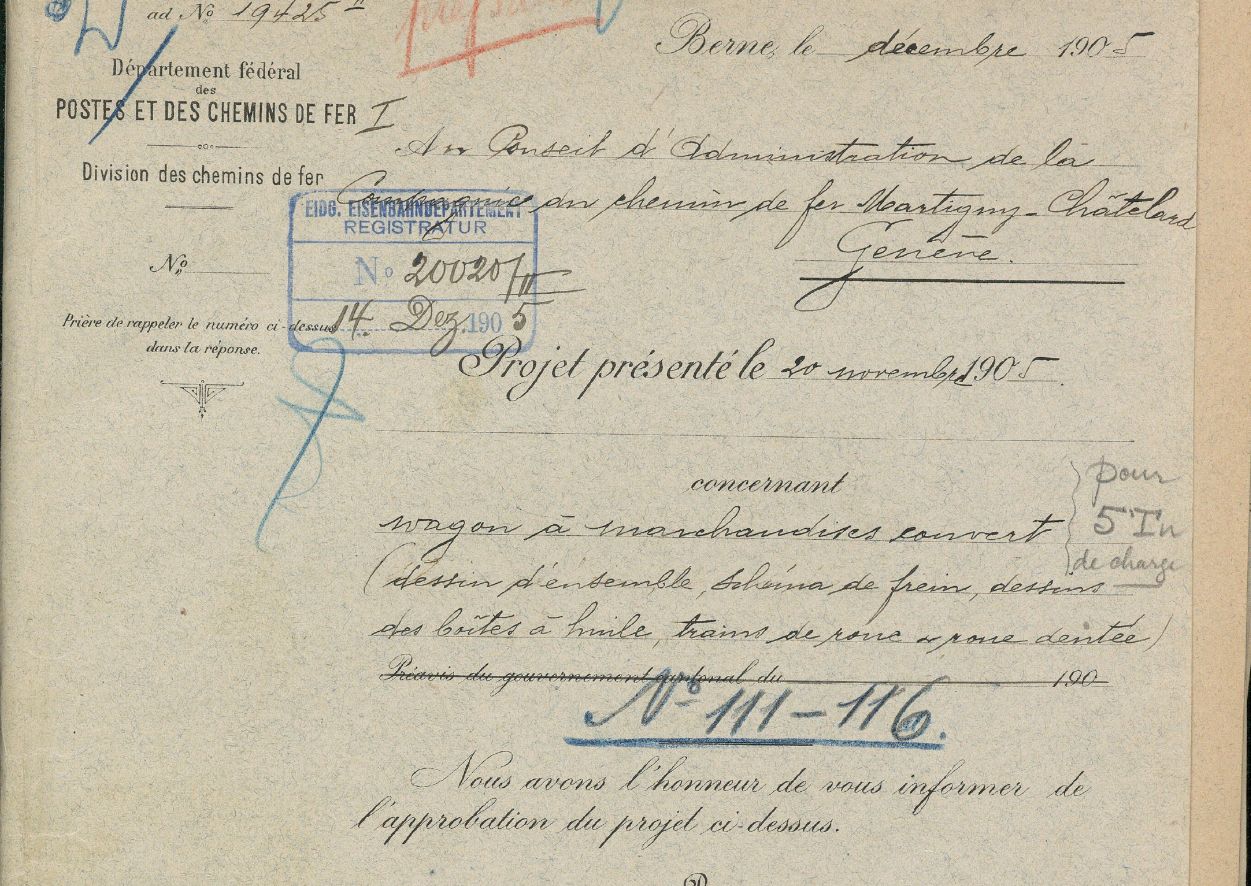 ad No 19425 II
Berne, le décembre 1905
Département fédéral
des
POSTES ET DES CHEMINS DE FER I
Division des chemins de fer
No
Prière de rappeler le numéro ci-dessus
dans la réponse.
Au Conseil d'Administration de la
Compagnie du chemin de fer Martigny-Châtelard
Genève.
EIDG. EISENBAHNDEPARTEMENT
REGISTRATUR
No 20020/II
14. Dez. 1905
Projet présenté le 20 novembre 1905.
concernant
wagon à marchandises couvert
pour
5 Tn
de charge
(dessin d'ensemble, schéma de frein, dessins
des boîtes à huile, trains de roue à roue dentée)
Préavis du gouvernement cantonal du 190
No 111-116.
Nous avons l'honneur de vous informer de
l'approbation du projet ci-dessus.